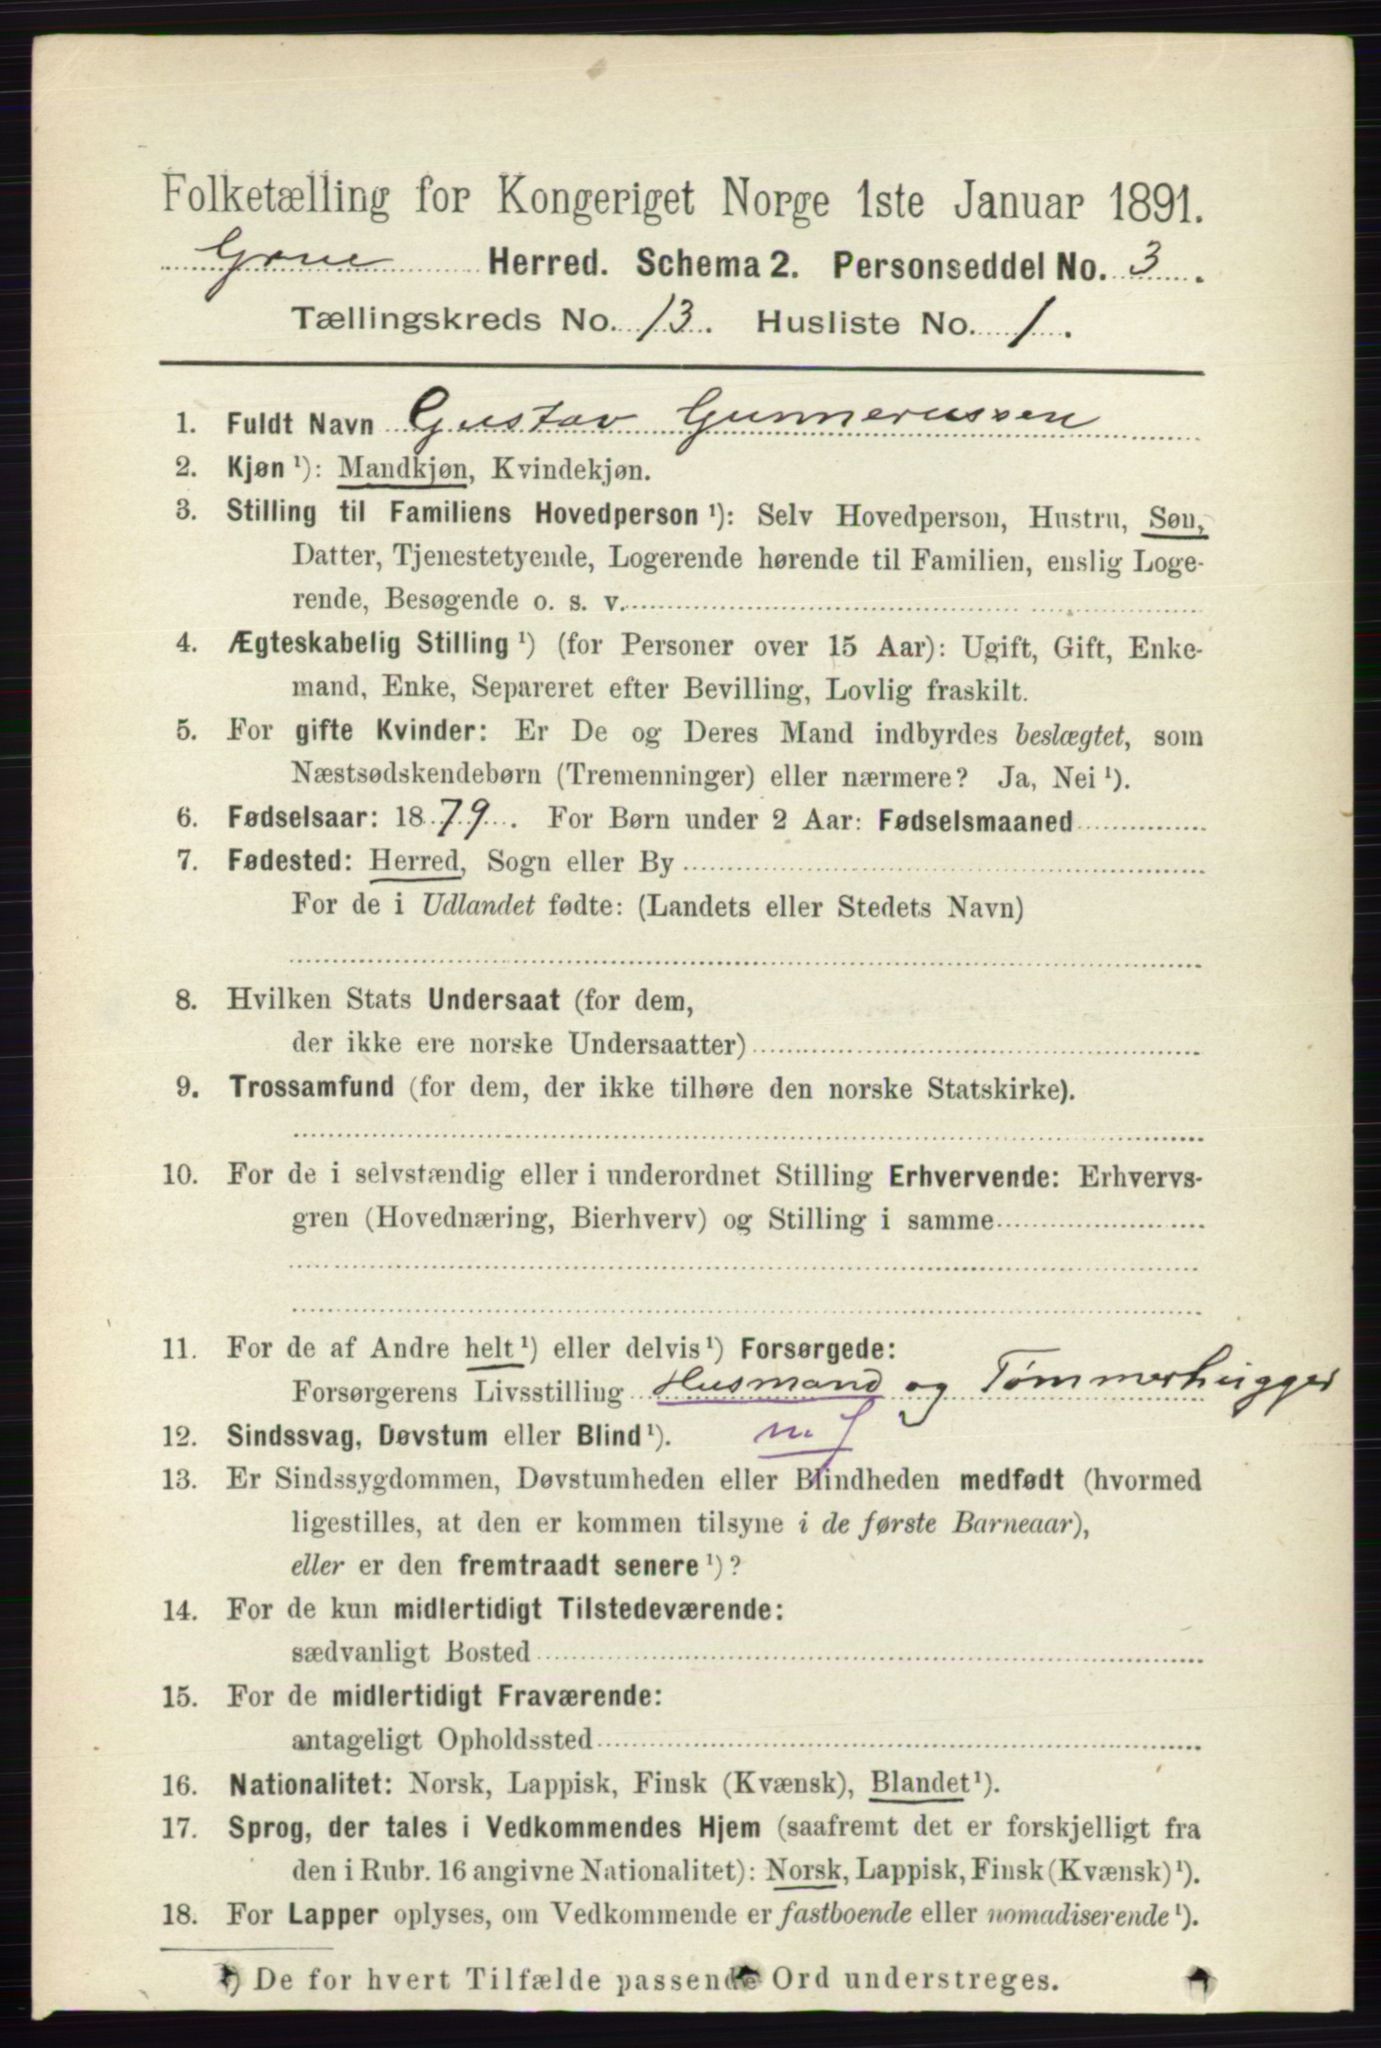 Folketælling for Kongeriget Norge 1ste Januar 1891.
Grue Herred. Schema 2. Personseddel No. 3.
Tællingskreds No. 13. Husliste No. 1.
1. Fuldt Navn Gustav Gunnerussen
2. Kjøn ¹): Mandkjøn, Kvindekjøn.
3. Stilling til Familiens Hovedperson ¹): Selv Hovedperson, Hustru, Søn,
Datter, Tjenestetyende, Logerende hørende til Familien, enslig Loge-
rende, Besøgende o. s. v.
4. Ægteskabelig Stilling ¹) (for Personer over 15 Aar): Ugift, Gift, Enke-
mand, Enke, Separeret efter Bevilling, Lovlig fraskilt.
5. For gifte Kvinder: Er De og Deres Mand indbyrdes beslægtet, som
Næstsødskendebørn (Tremenninger) eller nærmere? Ja, Nei ¹).
6. Fødselsaar: 1879. For Børn under 2 Aar: Fødselsmaaned
7. Fødested: Herred, Sogn eller By
For de i Udlandet fødte: (Landets eller Stedets Navn)
8. Hvilken Stats Undersaat (for dem,
der ikke ere norske Undersaatter)
9. Trossamfund (for dem, der ikke tilhøre den norske Statskirke).
10. For de i selvstændig eller i underordnet Stilling Erhvervende: Erhvervs-
gren (Hovednæring, Bierhverv) og Stilling i samme
11. For de af Andre helt ¹) eller delvis ¹) Forsørgede:
Forsørgerens Livsstilling Husmand og Tømmerhugger
12. Sindssvag, Døvstum eller Blind ¹). m. J
13. Er Sindssygdommen, Døvstumheden eller Blindheden medfødt (hvormed
ligestilles, at den er kommen tilsyne i de første Barneaar),
eller er den fremtraadt senere ¹)?
14. For de kun midlertidigt Tilstedeværende:
sædvanligt Bosted
15. For de midlertidigt Fraværende:
antageligt Opholdssted
16. Nationalitet: Norsk, Lappisk, Finsk (Kvænsk), Blandet ¹).
17. Sprog, der tales i Vedkommendes Hjem (saafremt det er forskjelligt fra
den i Rubr. 16 angivne Nationalitet): Norsk, Lappisk, Finsk (Kvænsk) ¹).
18. For Lapper oplyses, om Vedkommende er fastboende eller nomadiserende ¹).
¹) De for hvert Tilfælde passende Ord understreges.